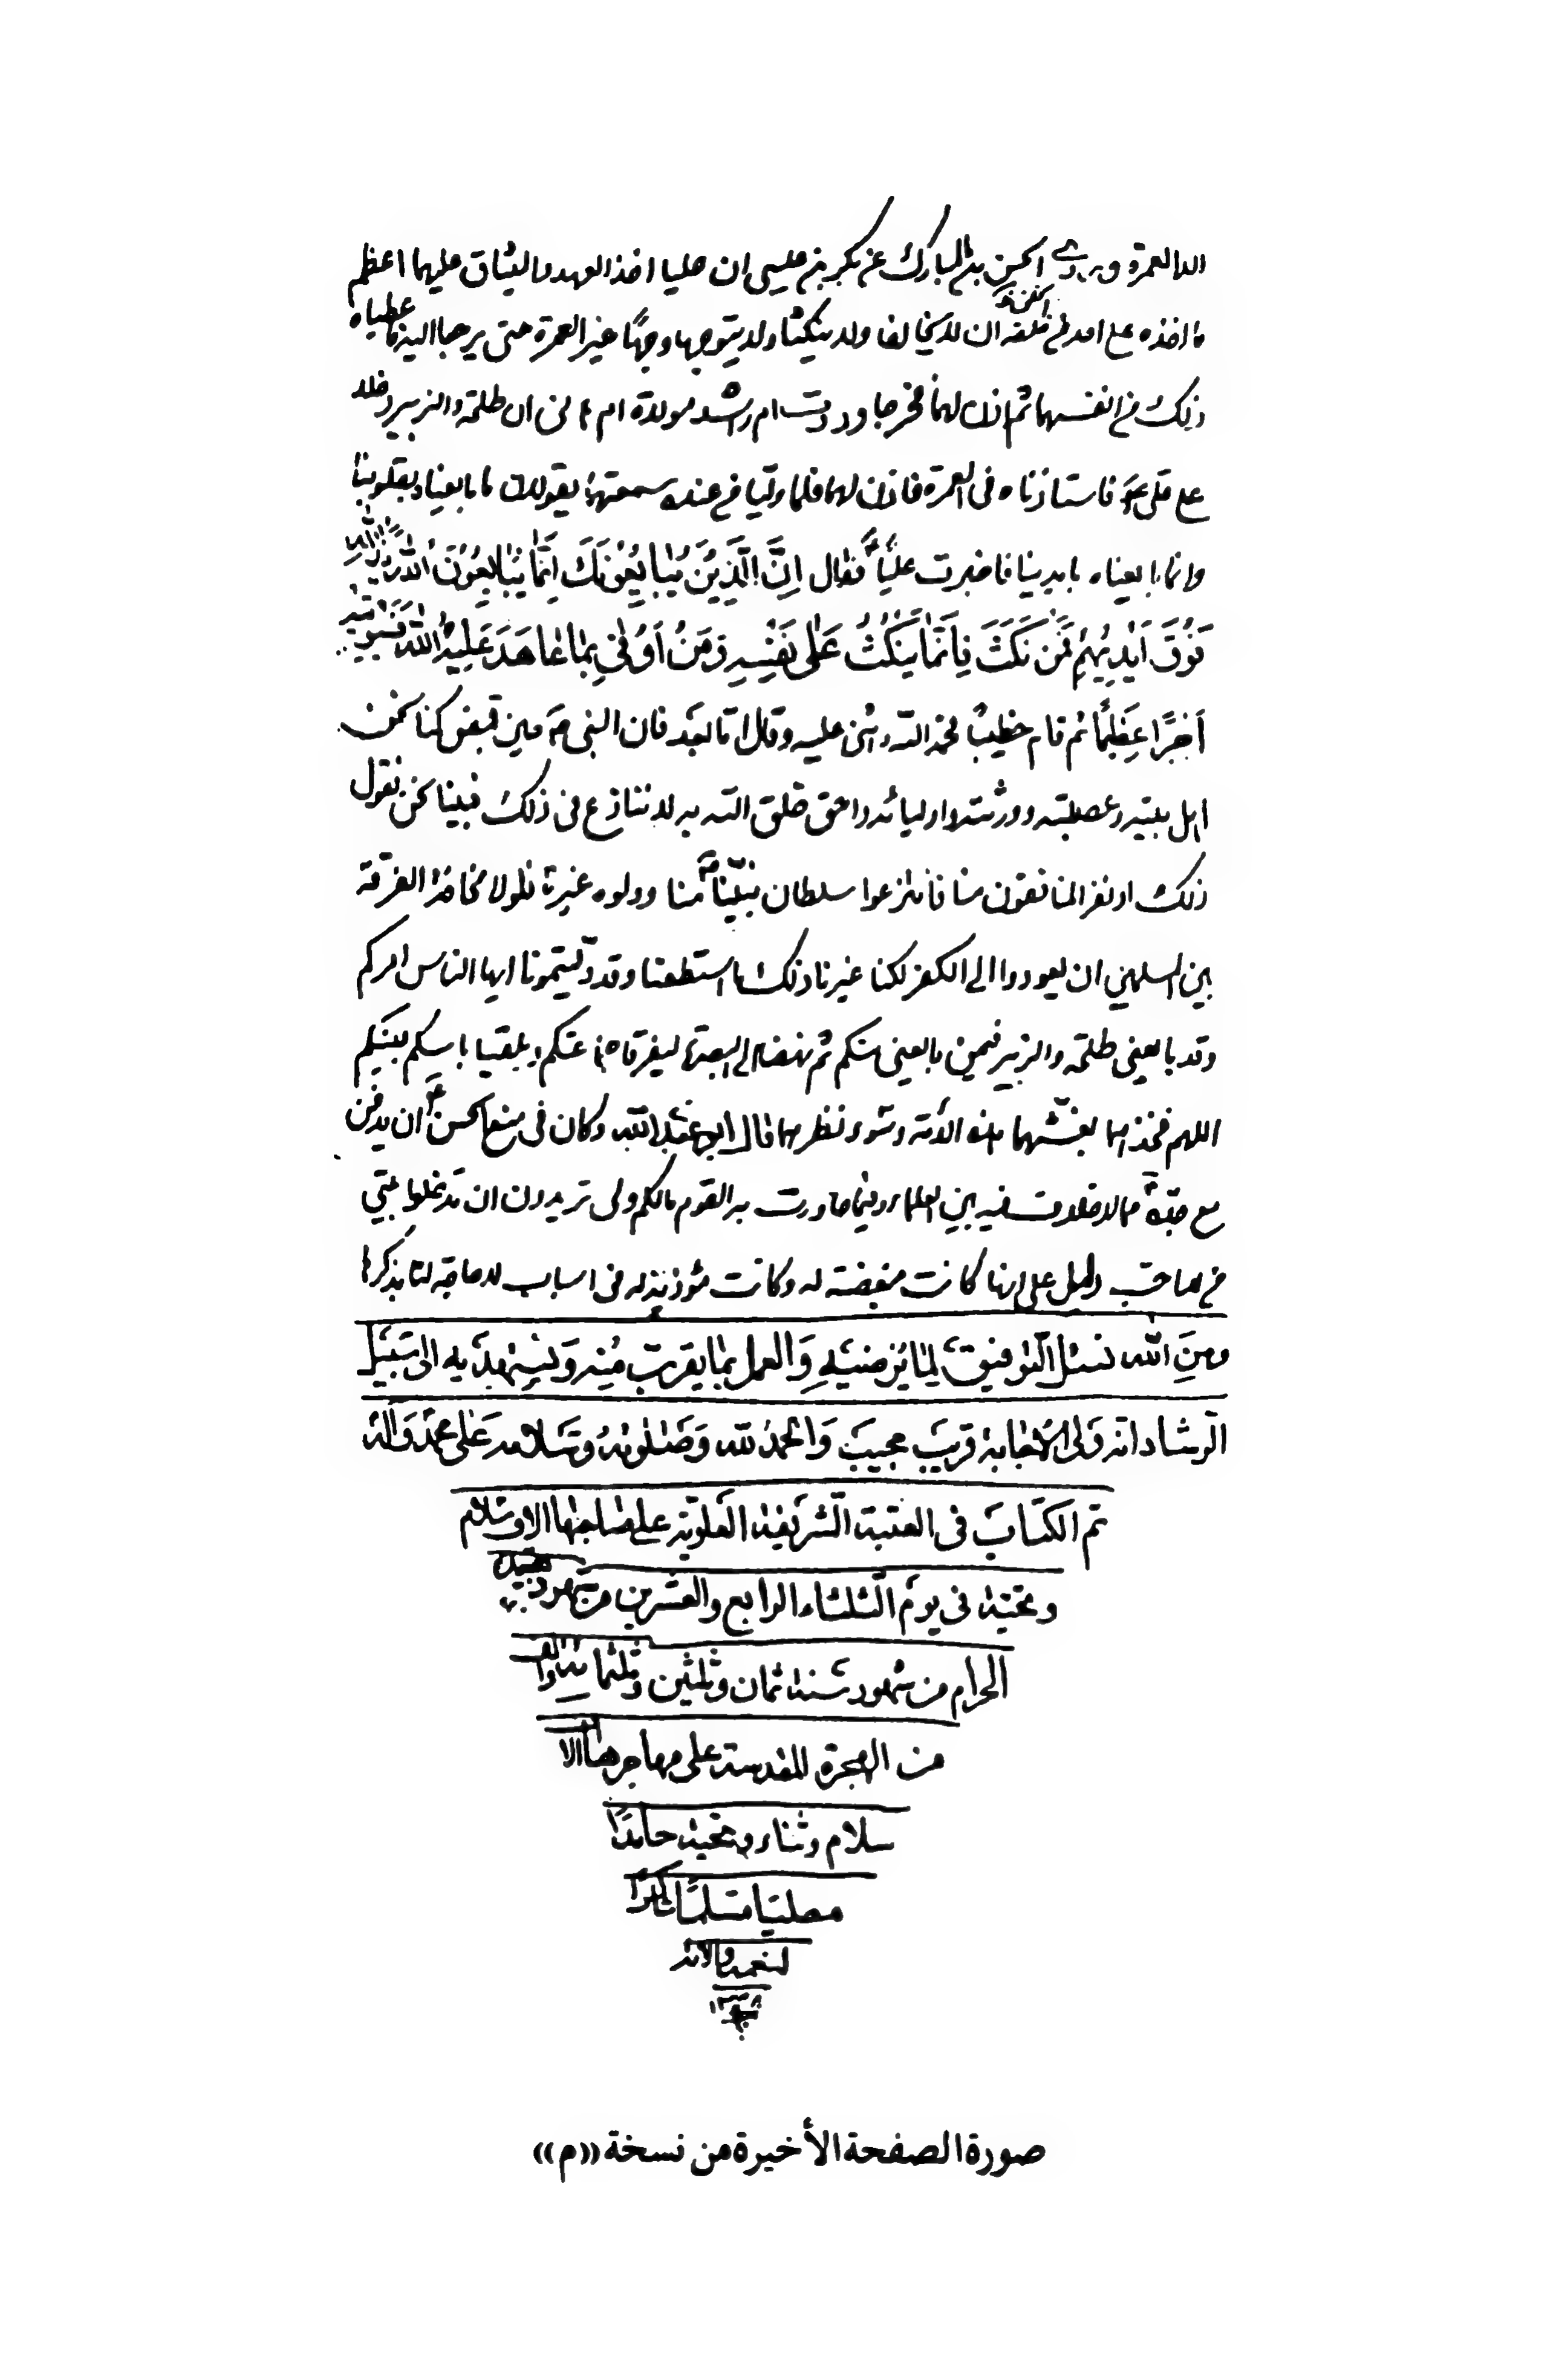 الا العمرة وروى الحسن بن المبارك عن بكر بن عيسى ان عليا اخذ العهد والميثاق عليهما اعظم
ما اخذه على احد من خلقه ان لا يخالفا ولا ينكثا ولا يتوجها وجهًا غير العمرة حتى يرجعا اليه فاعطياه
ذلك من انفسهما ثم اذن لهما فخرجا وروت ام راشد مولاة ام هانى ان طلحة والزبير دخلا
على على ع فاستاذناه فى العمرة فاذن لهما فلما وليا من عنده سمعتهما يقولان ما بايعناه بقلوبنا
وانما بايعناه بايدينا فاخبرت عليًّا ع فقال اِنَّ الَّذِينَ يُبَايِعُونَكَ اِنَّمَا يُبَايِعُونَ اللهَ يَدُ اللهِ
فَوْقَ اَيْدِيهِمْ فَمَنْ نَكَثَ فَاِنَّمَا يَنْكُثُ عَلَى نَفْسِهِ وَمَنْ اَوْفَى بِمَا عَاهَدَ عَلَيْهُ اللهَ فَسَيُؤْتِيهِ
اَجْرًا عَظِيمًا ثم قام خطيبًا فحمد الله واثنى عليه وقال اما بعد فان النبى ص حين قبض كنا نحن
اهل بيته وعصبته وورثته واوليائه واحق خلق الله به لا ننازع فى ذلك فبينا نحن نقول
ذلك اذ نفر المنافقون منا فانتزعوا سلطان نبيّنا ص منا وولوه غيرنا فلولا مخافة الفرقة
بين المسلمين ان يعودوا الى الكفر لكنا غيرنا ذلك ما استطعنا وقد ولّيتمونا ايها الناس امركم
وقد بايعنى طلحة والزبير فيمن بايعنى منكم ثم نهضا الى البصرة ليفرقا جماعتكم ويلقيا باسكم بينكم
اللهم فخذهما بغشّهما لهذه الأمة وسوء نظرهما قال ابو عبد الله وكان فى منع الحسن ع ان يدفن
مع جدّه ص مما لا خلاف فيه بين العلماء وفيما حاورت به القوم مالكم ولى تريدون ان تدخلوا بيتى
من لا احب دليل على انها كانت مبغضة له وكانت مؤذية له فى اسباب لا حاجة لنا بذكرها
ومِنَ الله نسئل التوفيق لما يرضيه وَالعمل بما يقرب منه وَنستهديه الى سَبيل
الرشاد انه ولى الاجابة قريب مجيب وَالحمدُ لله وَصَلوتهُ وَسَلامه عَلى محمّد وَآله
تم الكتاب فى العتبة الشريفة العلوية على صاحبها الاف سلام
وتحية فى يوم الثلثاء الرابع والعشرين من شهر ذيحجة
الحرام من شهور سنة ثمان وثلثين وثلثمائة والف
من الهجرة المقدسة على مهاجرها الاف
سلام وثناء وتحية حامدًا
مصليًا مسلمًا شاكرًا
لنعمه وآلائه
١٣٣٨
صورة الصفحة الأخيرة من نسخة «م»